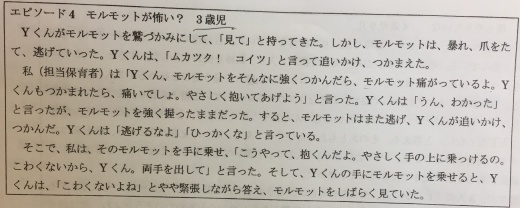 エピソード4 モルモットが怖い? 3歳児
Yくんがモルモットを鷲づかみにして、「見て」と持ってきた。しかし、モルモットは、暴れ、爪をた
て、逃げていった。Yくんは、「ムカツク! コイツ」と言って追いかけ、つかまえた。
私(担当保育者)は「Yくん、モルモットをそんなに強くつかんだら、モルモット痛がっているよ。Y
くんもつかまれたら、痛いでしょ。やさしく抱いてあげよう」と言った。Yくんは「うん、わかった」
と言ったが、モルモットを強く握ったままだった。すると、モルモットはまた逃げ、Yくんが追いかけ、
つかんだ。Yくんは「逃げるなよ」「ひっかくな」と言っている。
そこで、私は、そのモルモットを手に乗せ、「こうやって、抱くんだよ。やさしく手の上に乗っけるの。
こわくないから、Yくん。両手を出して」と言った。そして、Yくんの手にモルモットを乗せると、Y
くんは、「こわくないよね」とやや緊張しながら答え、モルモットをしばらく見ていた。